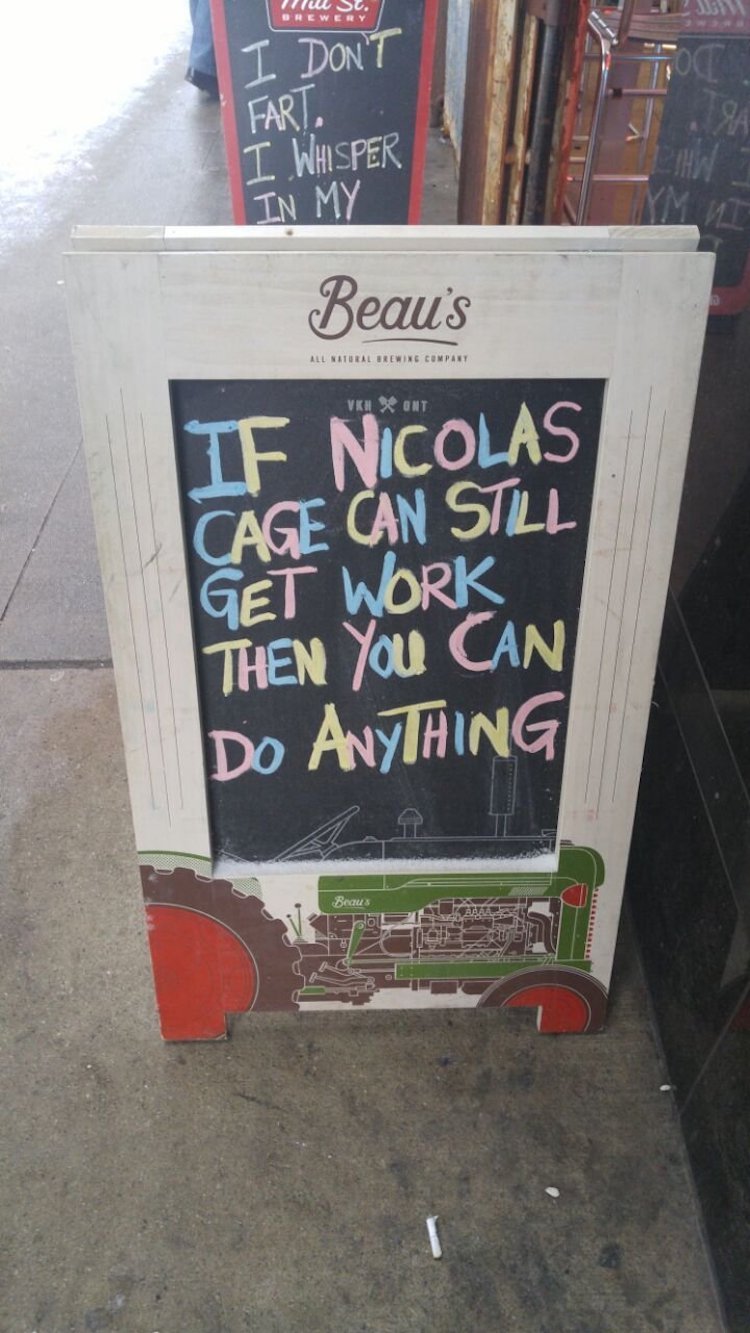 Mill St.
BREWERY
I DON'T
FART.
I WHISPER
IN MY
Beau's
ALL NATURAL BREWING COMPANY
VKH ONT
IF NICOLAS
CAGE CAN STILL
GET WORK
THEN YOU CAN
DO ANYTHING
Beau's